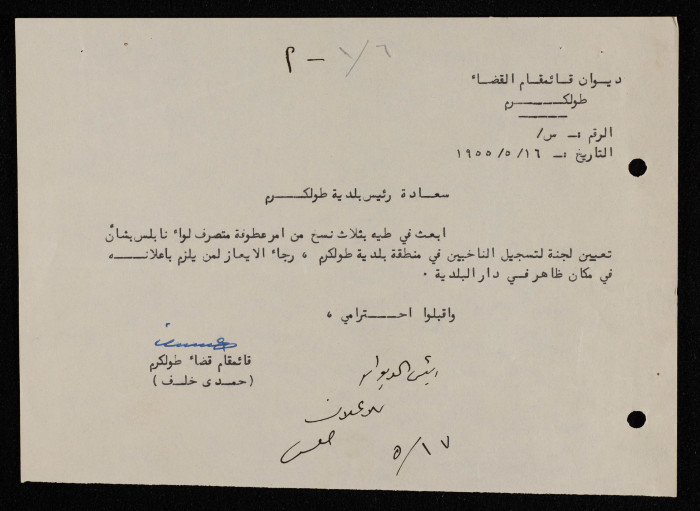 م - ١/٦
ديوان قائمقام القضاء
طولكرم
الرقم :- س/
التاريخ :- ١٩٥٥/٥/١٦
سعادة رئيس بلدية طولكرم
ابعث في طيه بثلاث نسخ من امر عطوفة متصرف لواء نابلس بشأن
تعيين لجنة لتسجيل الناخبين في منطقة بلدية طولكرم ، رجاء الايعاز لمن يلزم باعلانه
في مكان ظاهر في دار البلدية .
واقبلوا احترامي ،
قائمقام قضاء طولكرم
(حمدي خلف)
رئيس الديوان
للاعلان
٥/١٧